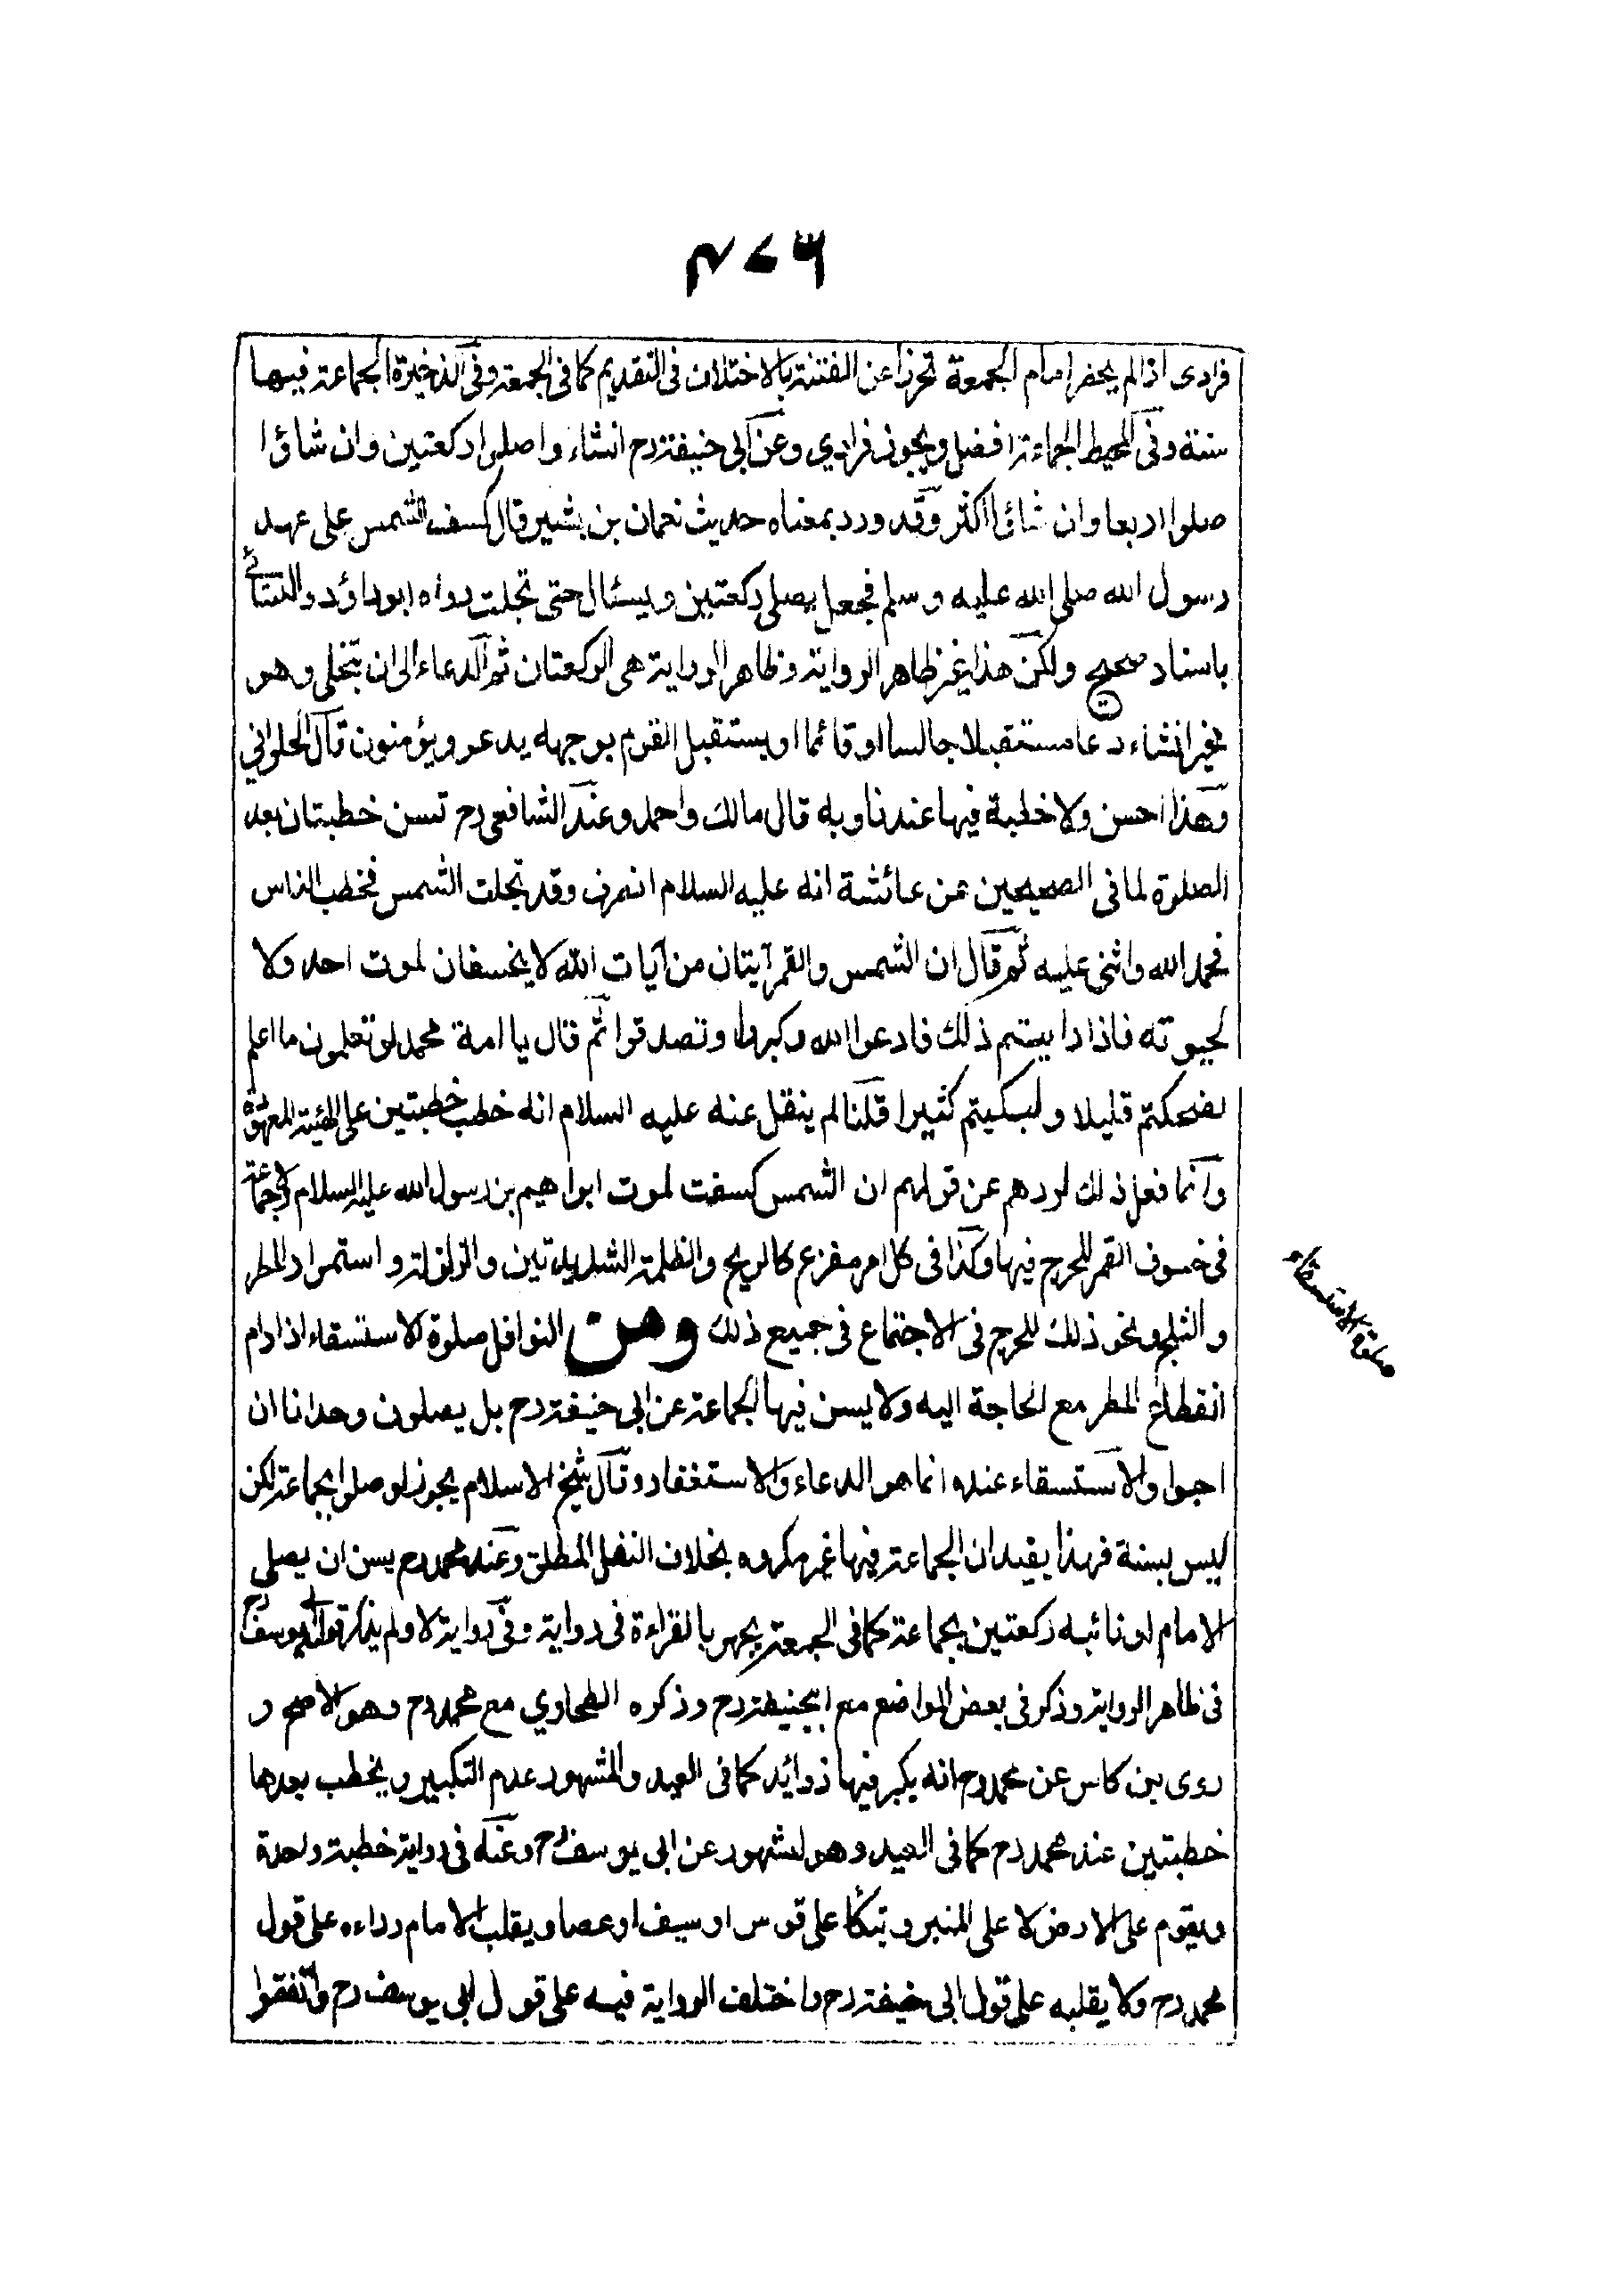 ۴۷۶
فرادى اذالم يحضر امام الجمعة تحرزا عن الفتنة بالاختلاف فى التقديم كما فى الجمعة وفى الذخيرة الجماعة فيها
سنة وفى المحيط الجماعة افضل ويجوز فرادي وعن ابى حنيفة رح انشاء واصلوا ركعتين وان شاؤا
صلوا اربعا وان شاؤا اكثر وقد ورد بمعناه حديث نعمان بن بشير قال كسف الشمس على عهد
رسول الله صلى الله عليه وسلم فجعل يصلى ركعتين ويسئال حتى تجلت رواه ابوداؤد والنسائے
باسناد صحيح ولكن هذا غير ظاهر الرواية وظاهر الرواية هى الركعتان ثم الدعاء الى ان تتجلى وهو
مخير انشاء دعا مستقبلا جالسا اوقائما او يستقبل القوم بوجهه يدعو ويؤمنون قال الحلواني
وهذا احسن ولا خطبة فيها عندنا وبه قال مالك واحمد وعند الشافعى رح تسن خطبتان بعد
الصلوة لما فى الصحيحين عن عائشة انه عليه السلام انصرف وقد تجلت الشمس فخطب الناس
فحمد الله واثنى عليه ثم قال ان الشمس والقمر آيتان من آيات الله لا يخسفان لموت احد ولا
لحيوته فاذا رايتم ذلك فادعوا الله وكبروا وتصدقوا ثم قال يا امة محمد لو تعلمون ما اعلم
لضحكتم قليلا ولبكيتم كثيرا قلنا لم ينقل عنه عليه السلام انه خطب خطبتين على الهيئة المعهودة
وانما فعل ذلك لردهم عن قولهم ان الشمس كسفت لموت ابراهيم بن رسول الله عليه السلام ولاجماعة
فى خسوف القمر للحرج فيها وكذا فى كل امر مفزع كالريح والظلمة الشديدتين والزلزلة واستمرار المطر
والثلج ونحو ذلك للحرج فى الاجتماع فى جميع ذلك ومن النوافل صلوة الاستسقاء اذا دام
صلوة الاستسقاء
انقطاع المطر مع الحاجة اليه ولا يسن فيها الجماعة عن ابى حنيفة رح بل يصلون وحدانا ان
احبوا والاستسقاء عنده انما هو الدعاء والاستغفار وقال شيخ الاسلام يجوز لو صلوا بجماعة لكن
ليس بسنة فهذا يفيد ان الجماعة فيها غير مكروه بخلاف النفل المطلق وعند محمد رح يسن ان يصلى
الامام او نائبه ركعتين بجماعة كما فى الجمعة يجهر بالقراءة فى رواية وفى رواية لا ولم يذكر قول ابى يوسف رح
فى ظاهر الرواية وذكر فى بعض المواضع مع ابيحنيفة رح وذكره الطحاوي مع محمد رح وهو الاصح و
روى بن كاس عن محمد رح انه يكبر فيها زوائد كما فى العيد والمشهور عدم التكبير ويخطب بعدها
خطبتين عند محمد رح كما فى العيد وهو المشهور عن ابى يوسف رح وعنه فى رواية خطبة واحدة
ويقوم على الارض لا على المنبر ويتكأ على قوس او سيف او عصا ويقلب الامام رداءه على قول
محمد رح ولا يقلبه على قول ابى حنيفة رح واختلف الرواية فيه على قول ابى يوسف رح واتفقوا